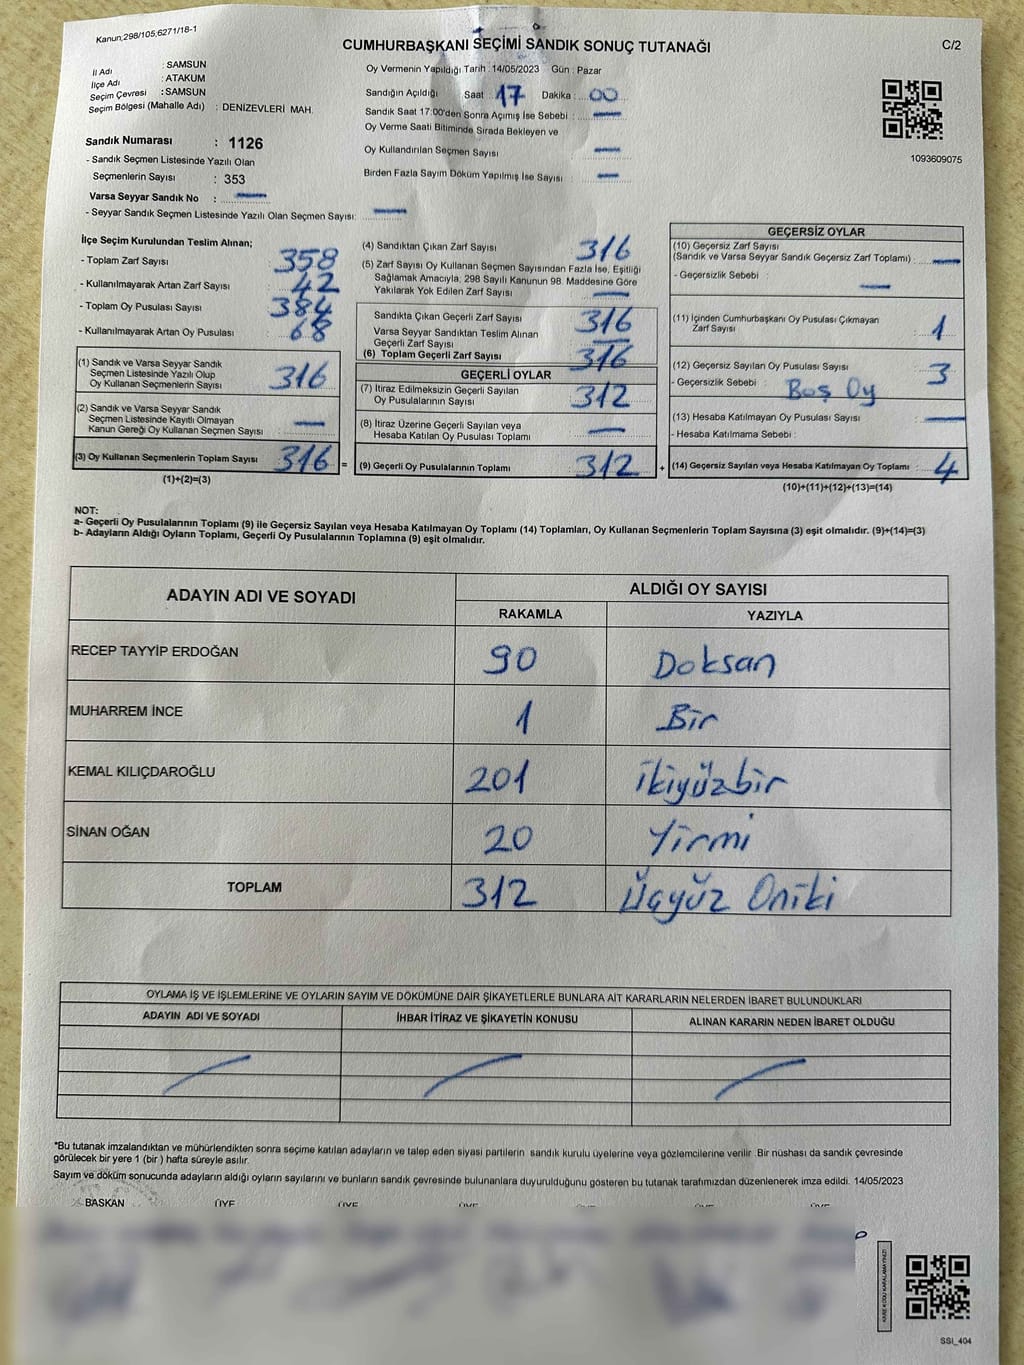 Kanun,298/105,6271/18-1
CUMHURBAŞKANI SEÇİMİ SANDIK SONUÇ TUTANAĞI
C/2
İl Adı : SAMSUN
İlçe Adı : ATAKUM
Seçim Çevresi : SAMSUN
Seçim Bölgesi (Mahalle Adı) : DENİZEVLERİ MAH.
Oy Vermenin Yapıldığı Tarih : 14/05/2023 Gün : Pazar
Sandığın Açıldığı Saat : 17 Dakika : 00
Sandık Saat 17:00'den Sonra Açımış İse Sebebi : —
Oy Verme Saati Bitiminde Sırada Bekleyen ve
Oy Kullandırılan Seçmen Sayısı : —
Birden Fazla Sayım Döküm Yapılmış İse Sayısı : —
1093609075
Sandık Numarası : 1126
- Sandık Seçmen Listesinde Yazılı Olan
Seçmenlerin Sayısı : 353
Varsa Seyyar Sandık No : —
- Seyyar Sandık Seçmen Listesinde Yazılı Olan Seçmen Sayısı: —
İlçe Seçim Kurulundan Teslim Alınan;
- Toplam Zarf Sayısı : 358
- Kullanılmayarak Artan Zarf Sayısı : 42
- Toplam Oy Pusulası Sayısı : 384
- Kullanılmayarak Artan Oy Pusulası : 68
(1) Sandık ve Varsa Seyyar Sandık
Seçmen Listesinde Yazılı Olup
Oy Kullanan Seçmenlerin Sayısı : 316
(2) Sandık ve Varsa Seyyar Sandık
Seçmen Listesinde Kayıtlı Olmayan
Kanun Gereği Oy Kullanan Seçmen Sayısı : —
(3) Oy Kullanan Seçmenlerin Toplam Sayısı : 316 =
(1)+(2)=(3)
(4) Sandıktan Çıkan Zarf Sayısı : 316
(5) Zarf Sayısı Oy Kullanan Seçmen Sayısından Fazla İse, Eşitliği
Sağlamak Amacıyla; 298 Sayılı Kanunun 98. Maddesine Göre
Yakılarak Yok Edilen Zarf Sayısı : —
Sandıkta Çıkan Geçerli Zarf Sayısı : 316
Varsa Seyyar Sandıktan Teslim Alınan
Geçerli Zarf Sayısı : —
(6) Toplam Geçerli Zarf Sayısı : 316
GEÇERLİ OYLAR
(7) İtiraz Edilmeksizin Geçerli Sayılan
Oy Pusulalarının Sayısı : 312
(8) İtiraz Üzerine Geçerli Sayılan veya
Hesaba Katılan Oy Pusulası Toplamı : —
(9) Geçerli Oy Pusulalarının Toplamı : 312 +
GEÇERSİZ OYLAR
(10) Geçersiz Zarf Sayısı
(Sandık ve Varsa Seyyar Sandık Geçersiz Zarf Toplamı) : —
- Geçersizlik Sebebi : —
(11) İçinden Cumhurbaşkanı Oy Pusulası Çıkmayan
Zarf Sayısı : 1
(12) Geçersiz Sayılan Oy Pusulası Sayısı : 3
- Geçersizlik Sebebi : Boş Oy
(13) Hesaba Katılmayan Oy Pusulası Sayısı : —
- Hesaba Katılmama Sebebi :
(14) Geçersiz Sayılan veya Hesaba Katılmayan Oy Toplamı : 4
(10)+(11)+(12)+(13)=(14)
NOT:
a- Geçerli Oy Pusulalarının Toplamı (9) ile Geçersiz Sayılan veya Hesaba Katılmayan Oy Toplamı (14) Toplamları, Oy Kullanan Seçmenlerin Toplam Sayısına (3) eşit olmalıdır. (9)+(14)=(3)
b- Adayların Aldığı Oyların Toplamı, Geçerli Oy Pusulalarının Toplamına (9) eşit olmalıdır.
ADAYIN ADI VE SOYADI
ALDIĞI OY SAYISI
RAKAMLA YAZIYLA
RECEP TAYYİP ERDOĞAN 90 Doksan
MUHARREM İNCE 1 Bir
KEMAL KILIÇDAROĞLU 201 ikiyüzbir
SİNAN OĞAN 20 Yirmi
TOPLAM 312 Üçyüz Oniki
OYLAMA İŞ VE İŞLEMLERİNE VE OYLARIN SAYIM VE DÖKÜMÜNE DAİR ŞİKAYETLERLE BUNLARA AİT KARARLARIN NELERDEN İBARET BULUNDUKLARI
ADAYIN ADI VE SOYADI İHBAR İTİRAZ VE ŞİKAYETİN KONUSU ALINAN KARARIN NEDEN İBARET OLDUĞU
*Bu tutanak imzalandıktan ve mühürlendikten sonra seçime katılan adayların ve talep eden siyasi partilerin sandık kurulu üyelerine veya gözlemcilerine verilir .Bir nüshası da sandık çevresinde
görülecek bir yere 1 (bir ) hafta süreyle asılır.
Sayım ve döküm sonucunda adayların aldığı oyların sayılarını ve bunların sandık çevresinde bulunanlara duyurulduğunu gösteren bu tutanak tarafımızdan düzenlenerek imza edildi. 14/05/2023
BAŞKAN ÜYE ÜYE ÜYE ÜYE ÜYE ÜYE
KARE KODU KARALAMAYINIZ!
SSI_404